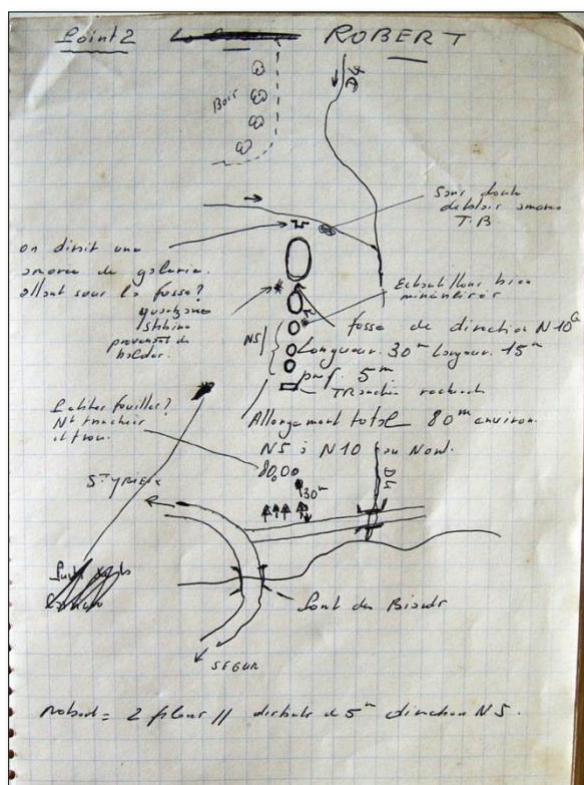 Point 2 ROBERT
Bois
D4
Sans doute
deblais amone
T.B
on dirait une
amorce de galerie.
allant sous la fosse?
quartzeuse
stibine
provenant de
Echantillons bien
minéralisés
fosse de direction N 10 G
Longueur 30m Largeur 15m
prof. 5m
NS
Tranchée recherche
Allongement total 80m environ.
NS à N10 au Nord.
Petites fouilles?
Nb tranchées
et trou.
80,00
30m
D4
ST YRIEIX
Pont des Biards
SEGUR
Robert = 2 filons // distants de 5m direction NS.